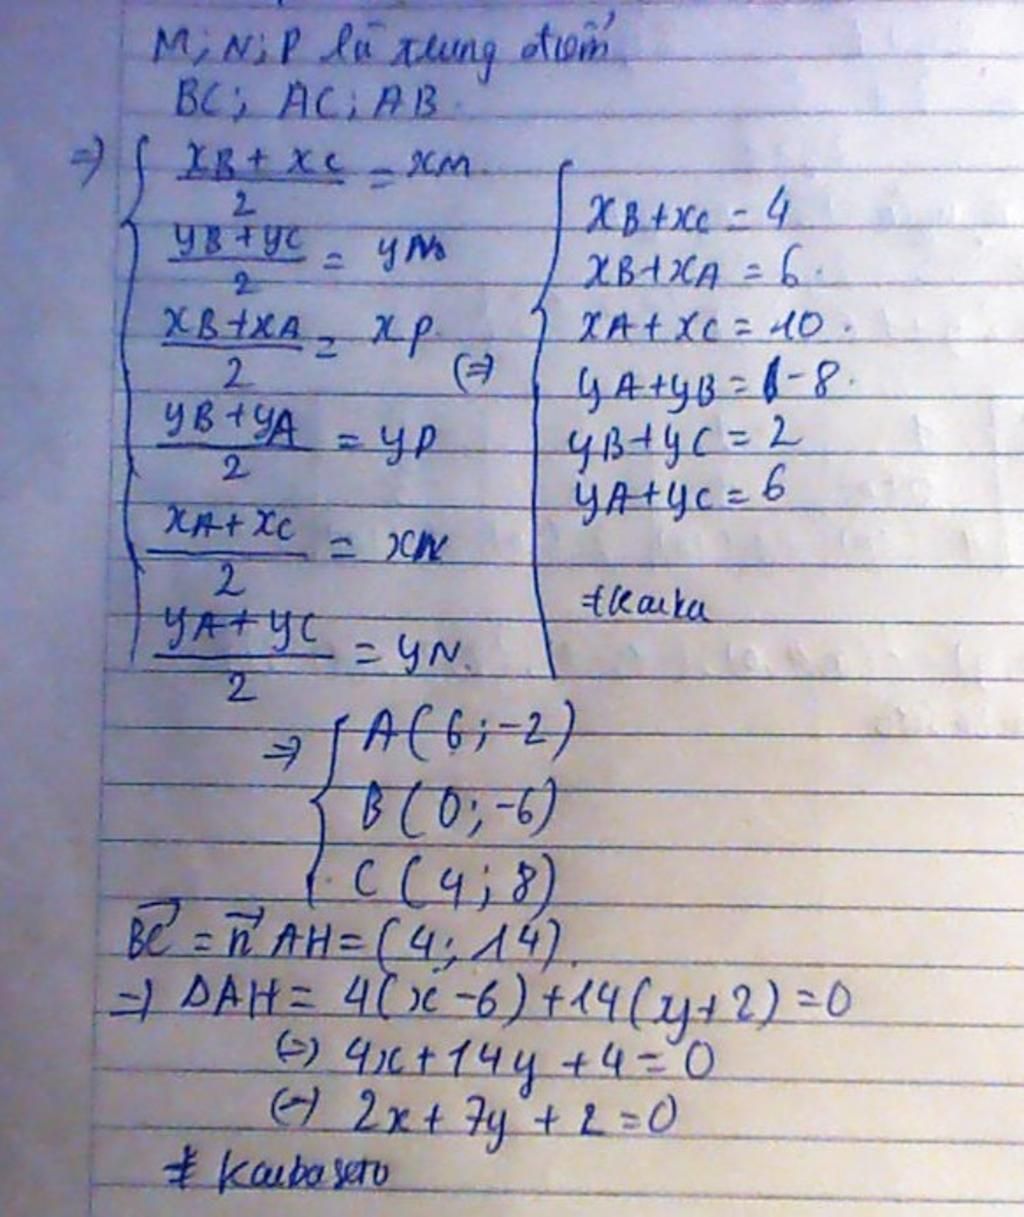 M; N; P là trung điểm
BC; AC; AB.
=> { (xB + xC)/2 = xM
(yB + yC)/2 = yM
(xB + xA)/2 = xP
(yB + yA)/2 = yP
(xA + xC)/2 = xN
(yA + yC)/2 = yN.
(=) { xB + xC = 4
xB + xA = 6.
xA + xC = 10.
yA + yB = -8.
yB + yC = 2
yA + yC = 6
=> { A(6; -2)
B(0; -6)
C(4; 8)
BC→ = n→ AH = (4; 14).
=> ΔAH = 4(x - 6) + 14(y + 2) = 0
(=) 4x + 14y + 4 = 0
(=) 2x + 7y + 2 = 0